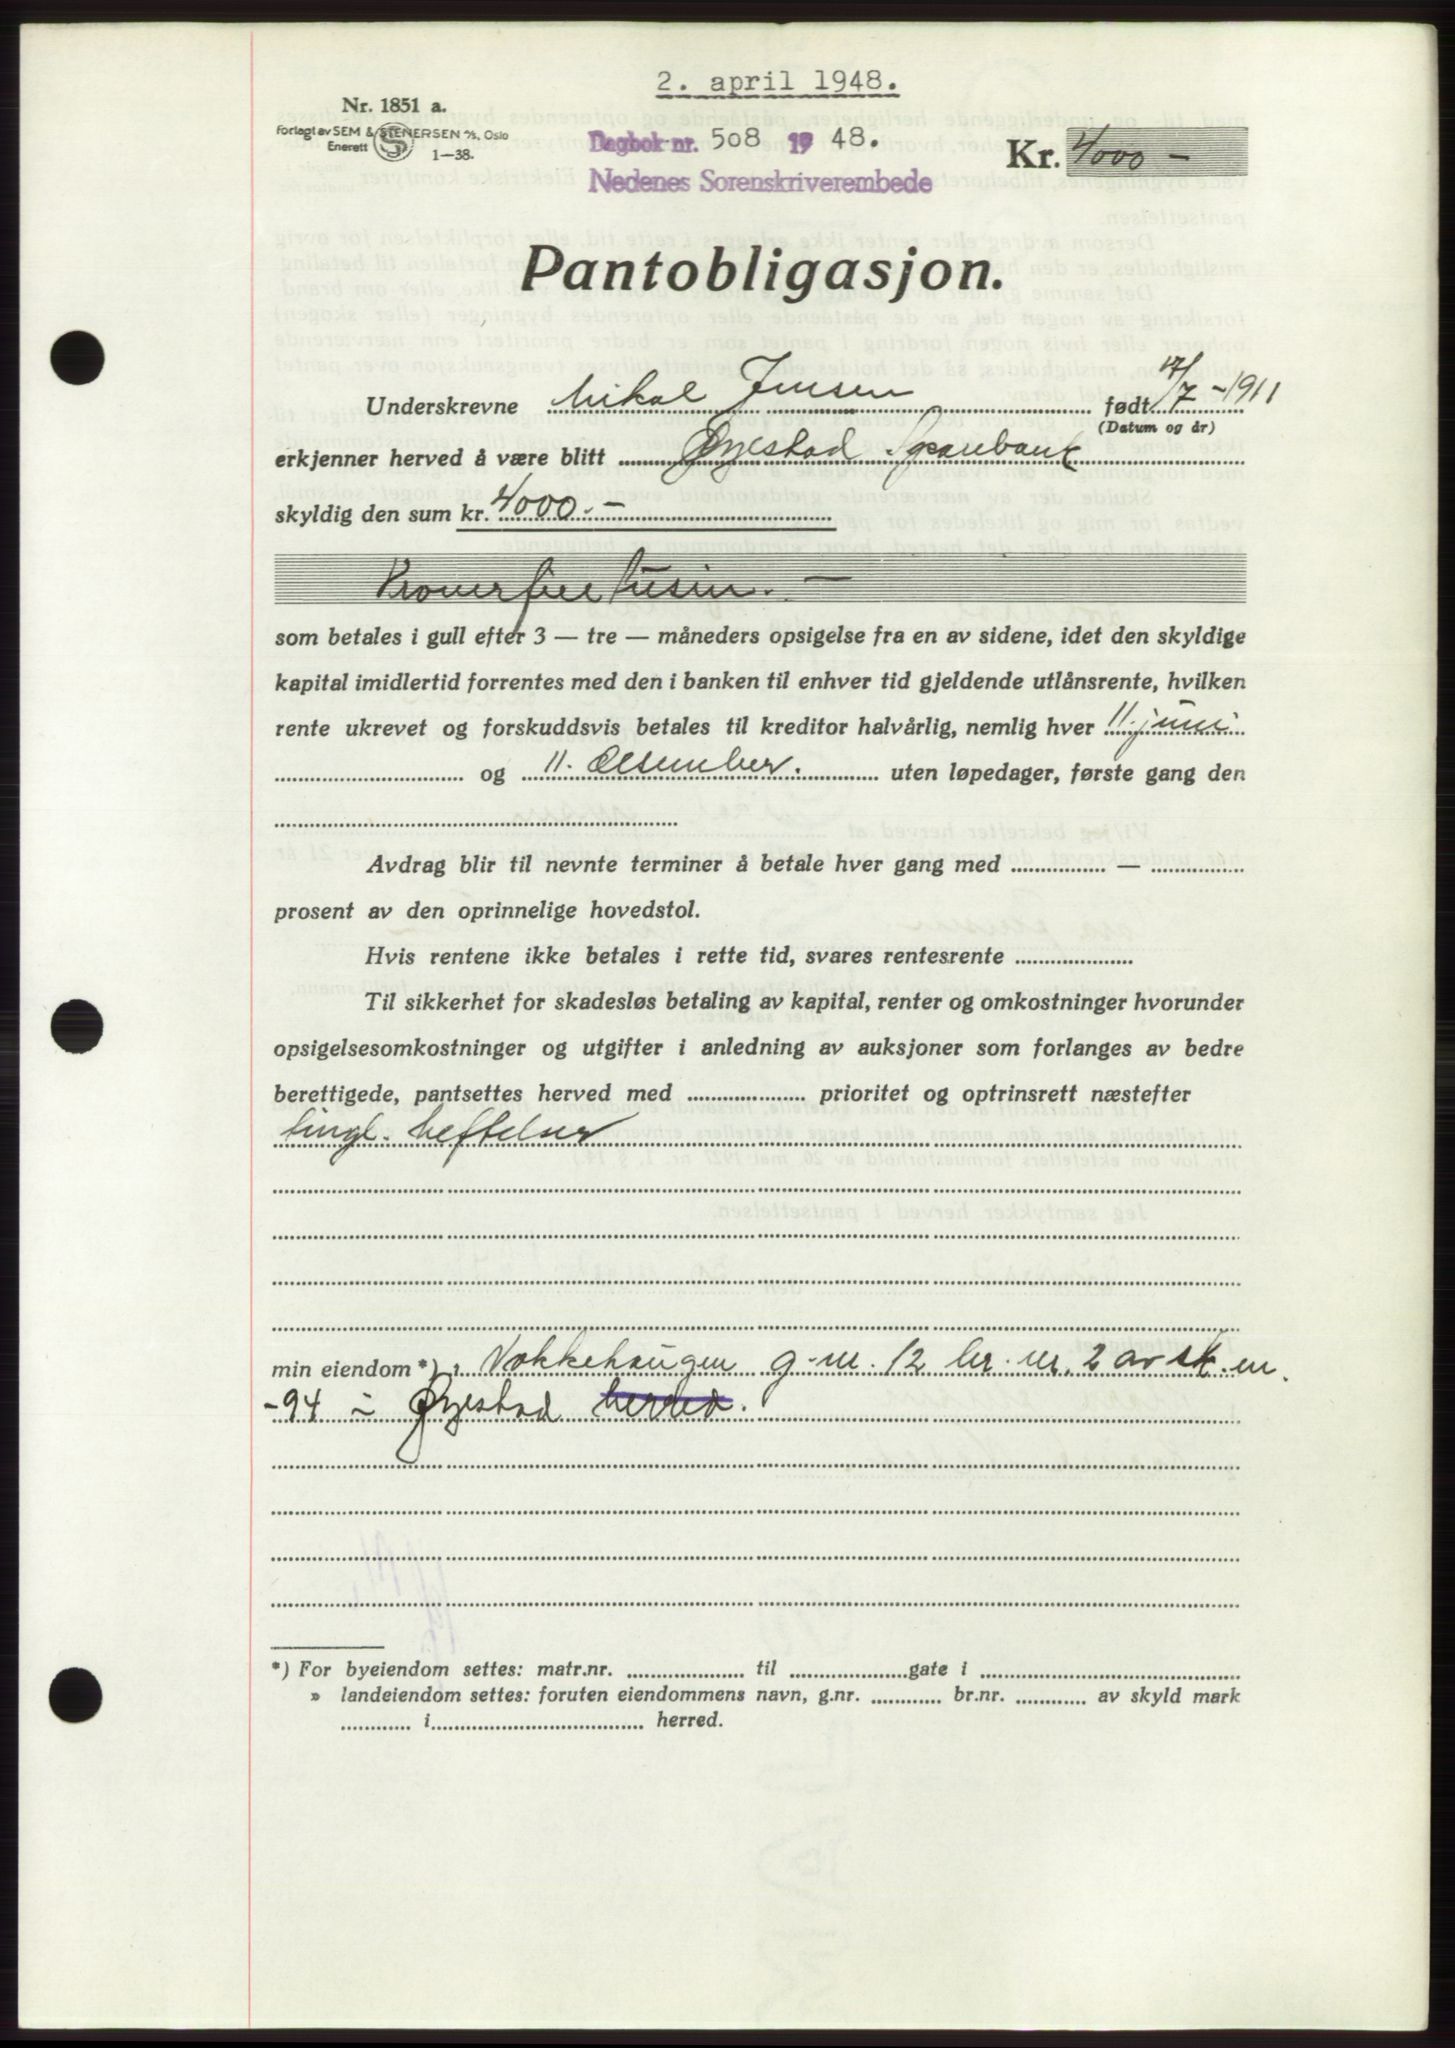 2. april 1948.
Nr. 1851 a.
Forlagt av SEM & STENERSEN A/S, Oslo
Enerett
1-38.
Dagbok nr. 508 19 48.
Nedenes Sorenskriverembede
Kr. 4000 —
Pantobligasjon.
Underskrevne Mikal Jensen født 17/7 - 1911
(Datum og år)
erkjenner herved å være blitt Øyestad Sparebank
skyldig den sum kr. 4000.—
Kroner fire tusin. —
som betales i gull efter 3 — tre — måneders opsigelse fra en av sidene, idet den skyldige
kapital imidlertid forrentes med den i banken til enhver tid gjeldende utlånsrente, hvilken
rente ukrevet og forskuddsvis betales til kreditor halvårlig, nemlig hver 11. juni
og 11. desember. uten løpedager, første gang den
Avdrag blir til nevnte terminer å betale hver gang med —
prosent av den oprinnelige hovedstol.
Hvis rentene ikke betales i rette tid, svares rentesrente
Til sikkerhet for skadesløs betaling av kapital, renter og omkostninger hvorunder
opsigelsesomkostninger og utgifter i anledning av auksjoner som forlanges av bedre
berettigede, pantsettes herved med prioritet og optrinsrett næstefter
tingl. heftelser
min eiendom *) Vokkehaugen g.nr. 12 br. nr. 2 av sk. m.
-94 i Øyestad herred.
*) For byeiendom settes: matr.nr. til gate i
» landeiendom settes: foruten eiendommens navn, g.nr. br.nr. av skyld mark
i herred.